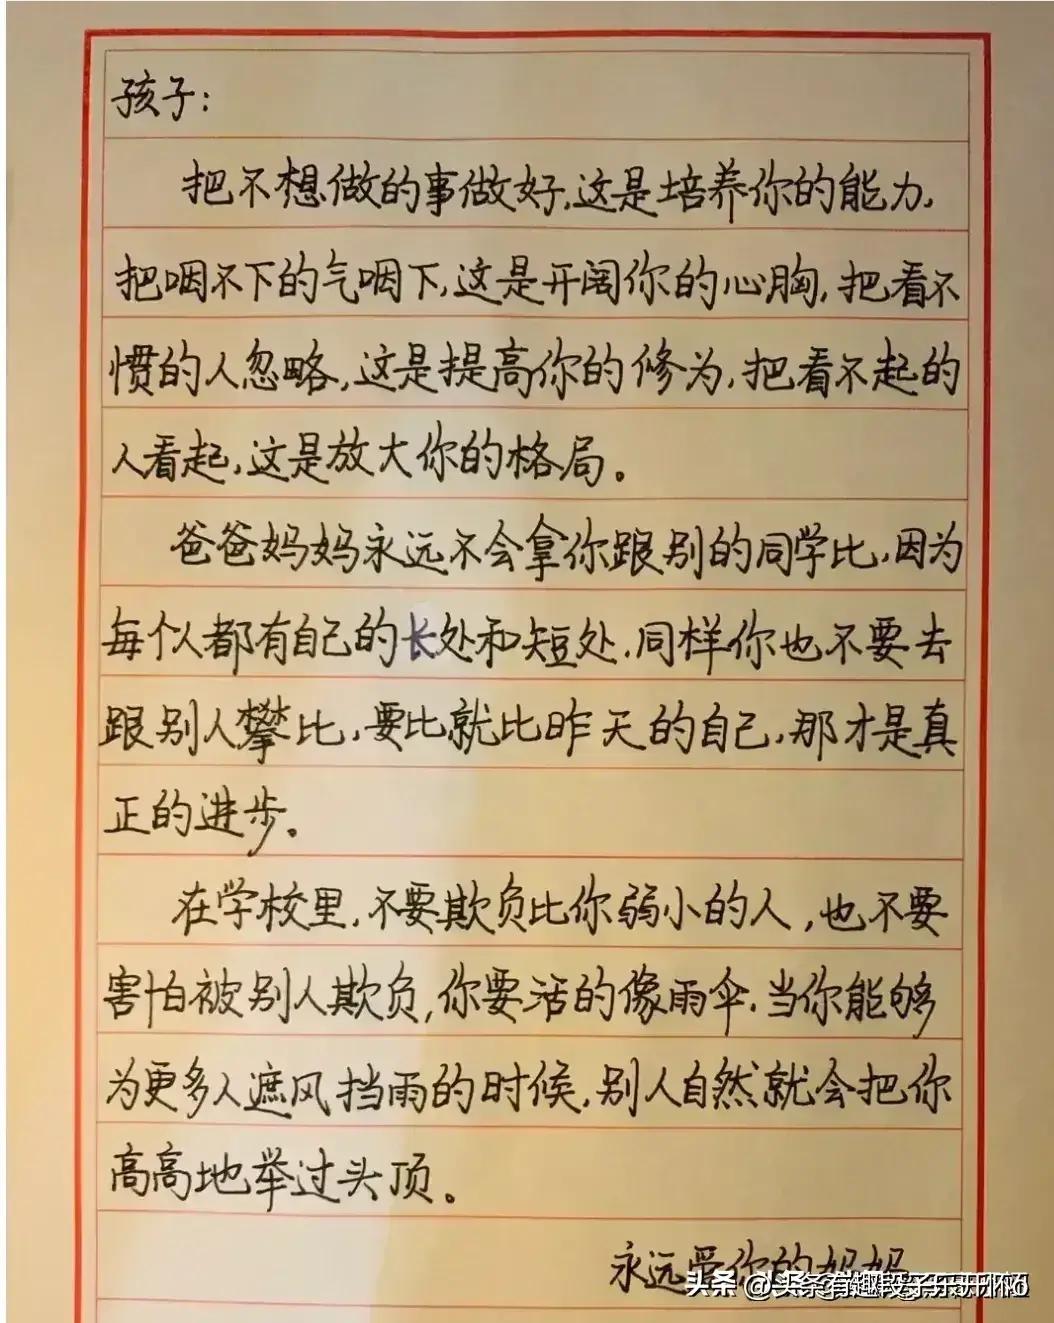 孩子：
把不想做的事做好,这是培养你的能力,
把咽不下的气咽下,这是开阔你的心胸,把看不
惯的人忽略,这是提高你的修为,把看不起的
人看起,这是放大你的格局。
爸爸妈妈永远不会拿你跟别的同学比,因为
每个人都有自己的长处和短处,同样你也不要去
跟别人攀比,要比就比昨天的自己,那才是真
正的进步。
在学校里,不要欺负比你弱小的人,也不要
害怕被别人欺负,你要活的像雨伞.当你能够
为更多人遮风挡雨的时候,别人自然就会把你
高高地举过头顶。
永远爱你的妈妈
头条 @头条有趣段子